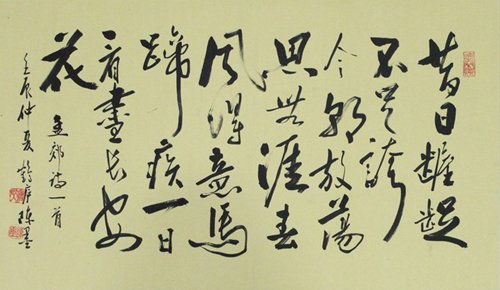 昔日齷齪
不足誇
今朝放蕩
思無涯春
風得意馬
蹄疾一日
看盡長安
花 孟郊詩一首
壬辰仲夏